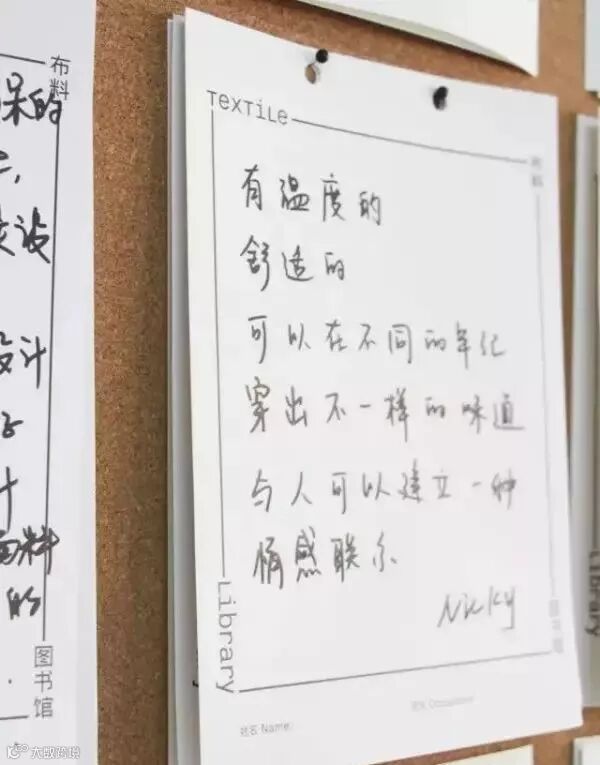 布料
保的
设
设计
计
面料
的
图书馆
TexTiLe
布料
有温度的
舒适的
可以在不同的年纪
穿出不一样的味道
与人可以建立一种
情感联系
Nicky
Library
图书馆
姓名 Name:
Library
大数跨境